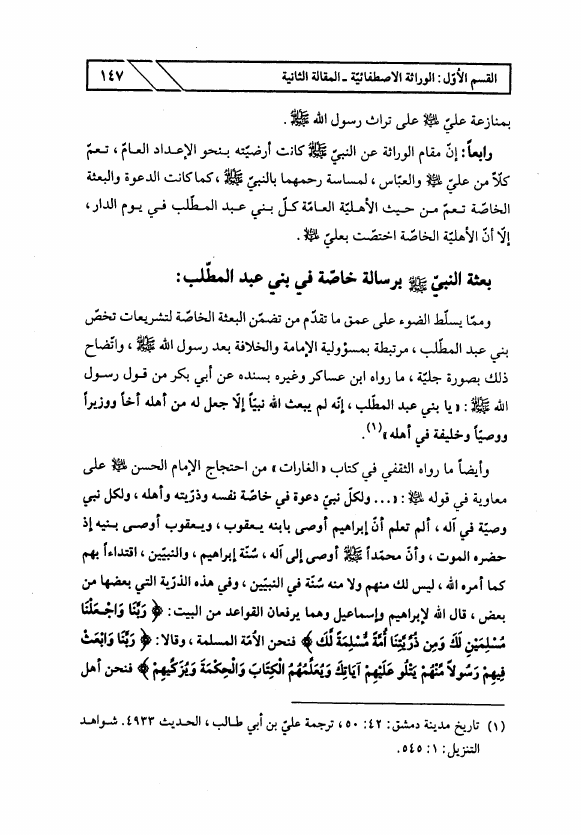 القسم الأوّل : الوراثة الاصطفائيّة ـ المقالة الثانية ١٤٧
بمنازعة عليّ ﷺ على تراث رسول الله ﷺ.
رابعاً: إنّ مقام الوراثة عن النبيّ ﷺ كانت أرضيّته بنحو الإعداد العامّ ، تعمّ
كلّاً من عليّ ﷺ والعبّاس ، لمساسة رحمهما بالنبيّ ﷺ ، كما كانت الدعوة والبعثة
الخاصّة تعمّ من حيث الأهليّة العامّة كلّ بني عبد المطّلب في يوم الدار ،
إلّا أنّ الأهليّة الخاصّة اختصّت بعليّ ﷺ.
بعثة النبيّ ﷺ برسالة خاصّة في بني عبد المطّلب:
وممّا يسلّط الضوء على عمق ما تقدّم من تضمّن البعثة الخاصّة لتشريعات تخصّ
بني عبد المطّلب ، مرتبطة بمسؤولية الإمامة والخلافة بعد رسول الله ﷺ ، واتّضاح
ذلك بصورة جليّة ، ما رواه ابن عساكر وغيره بسنده عن أبي بكر من قول رسول
الله ﷺ : «يا بني عبد المطّلب ، إنّه لم يبعث الله نبيّاً إلّا جعل له من أهله أخاً ووزيراً
ووصيّاً وخليفة في أهله»(١).
وأيضاً ما رواه الثقفي في كتاب «الغارات» من احتجاج الإمام الحسن ﷺ على
معاوية في قوله ﷺ : «... ولكلّ نبيّ دعوة في خاصّة نفسه وذرّيته وأهله ، ولكل نبي
وصيّة في آله ، ألم تعلم أنّ إبراهيم أوصى بابنه يعقوب ، ويعقوب أوصى بنيه إذ
حضره الموت ، وأنّ محمّداً ﷺ أوصى إلى آله ، سُنّة إبراهيم ، والنبيّين ، اقتداءاً بهم
كما أمره الله ، ليس لك منهم ولا منه سُنّة في النبيّين ، وفي هذه الذرّية التي بعضها من
بعض ، قال الله لإبراهيم وإسماعيل وهما يرفعان القواعد من البيت: ﴿ رَبَّنَا وَاجْعَلْنَا
مُسْلِمَيْنِ لَكَ وَمِن ذُرِّيَّتِنَا أُمَّةً مُّسْلِمَةً لَّكَ ﴾ فنحن الأمّة المسلمة ، وقالا: ﴿ رَبَّنَا وَابْعَثْ
فِيهِمْ رَسُولاً مِّنْهُمْ يَتْلُو عَلَيْهِمْ آيَاتِكَ وَيُعَلِّمُهُمُ الْكِتَابَ وَالْحِكْمَةَ وَيُزَكِّيهِمْ ﴾ فنحن أهل
(١) تاريخ مدينة دمشق: ٤٢: ٥٠ ، ترجمة عليّ بن أبي طالب ، الحديث ٤٩٣٣. شواهد
التنزيل: ١: ٥٤٥.